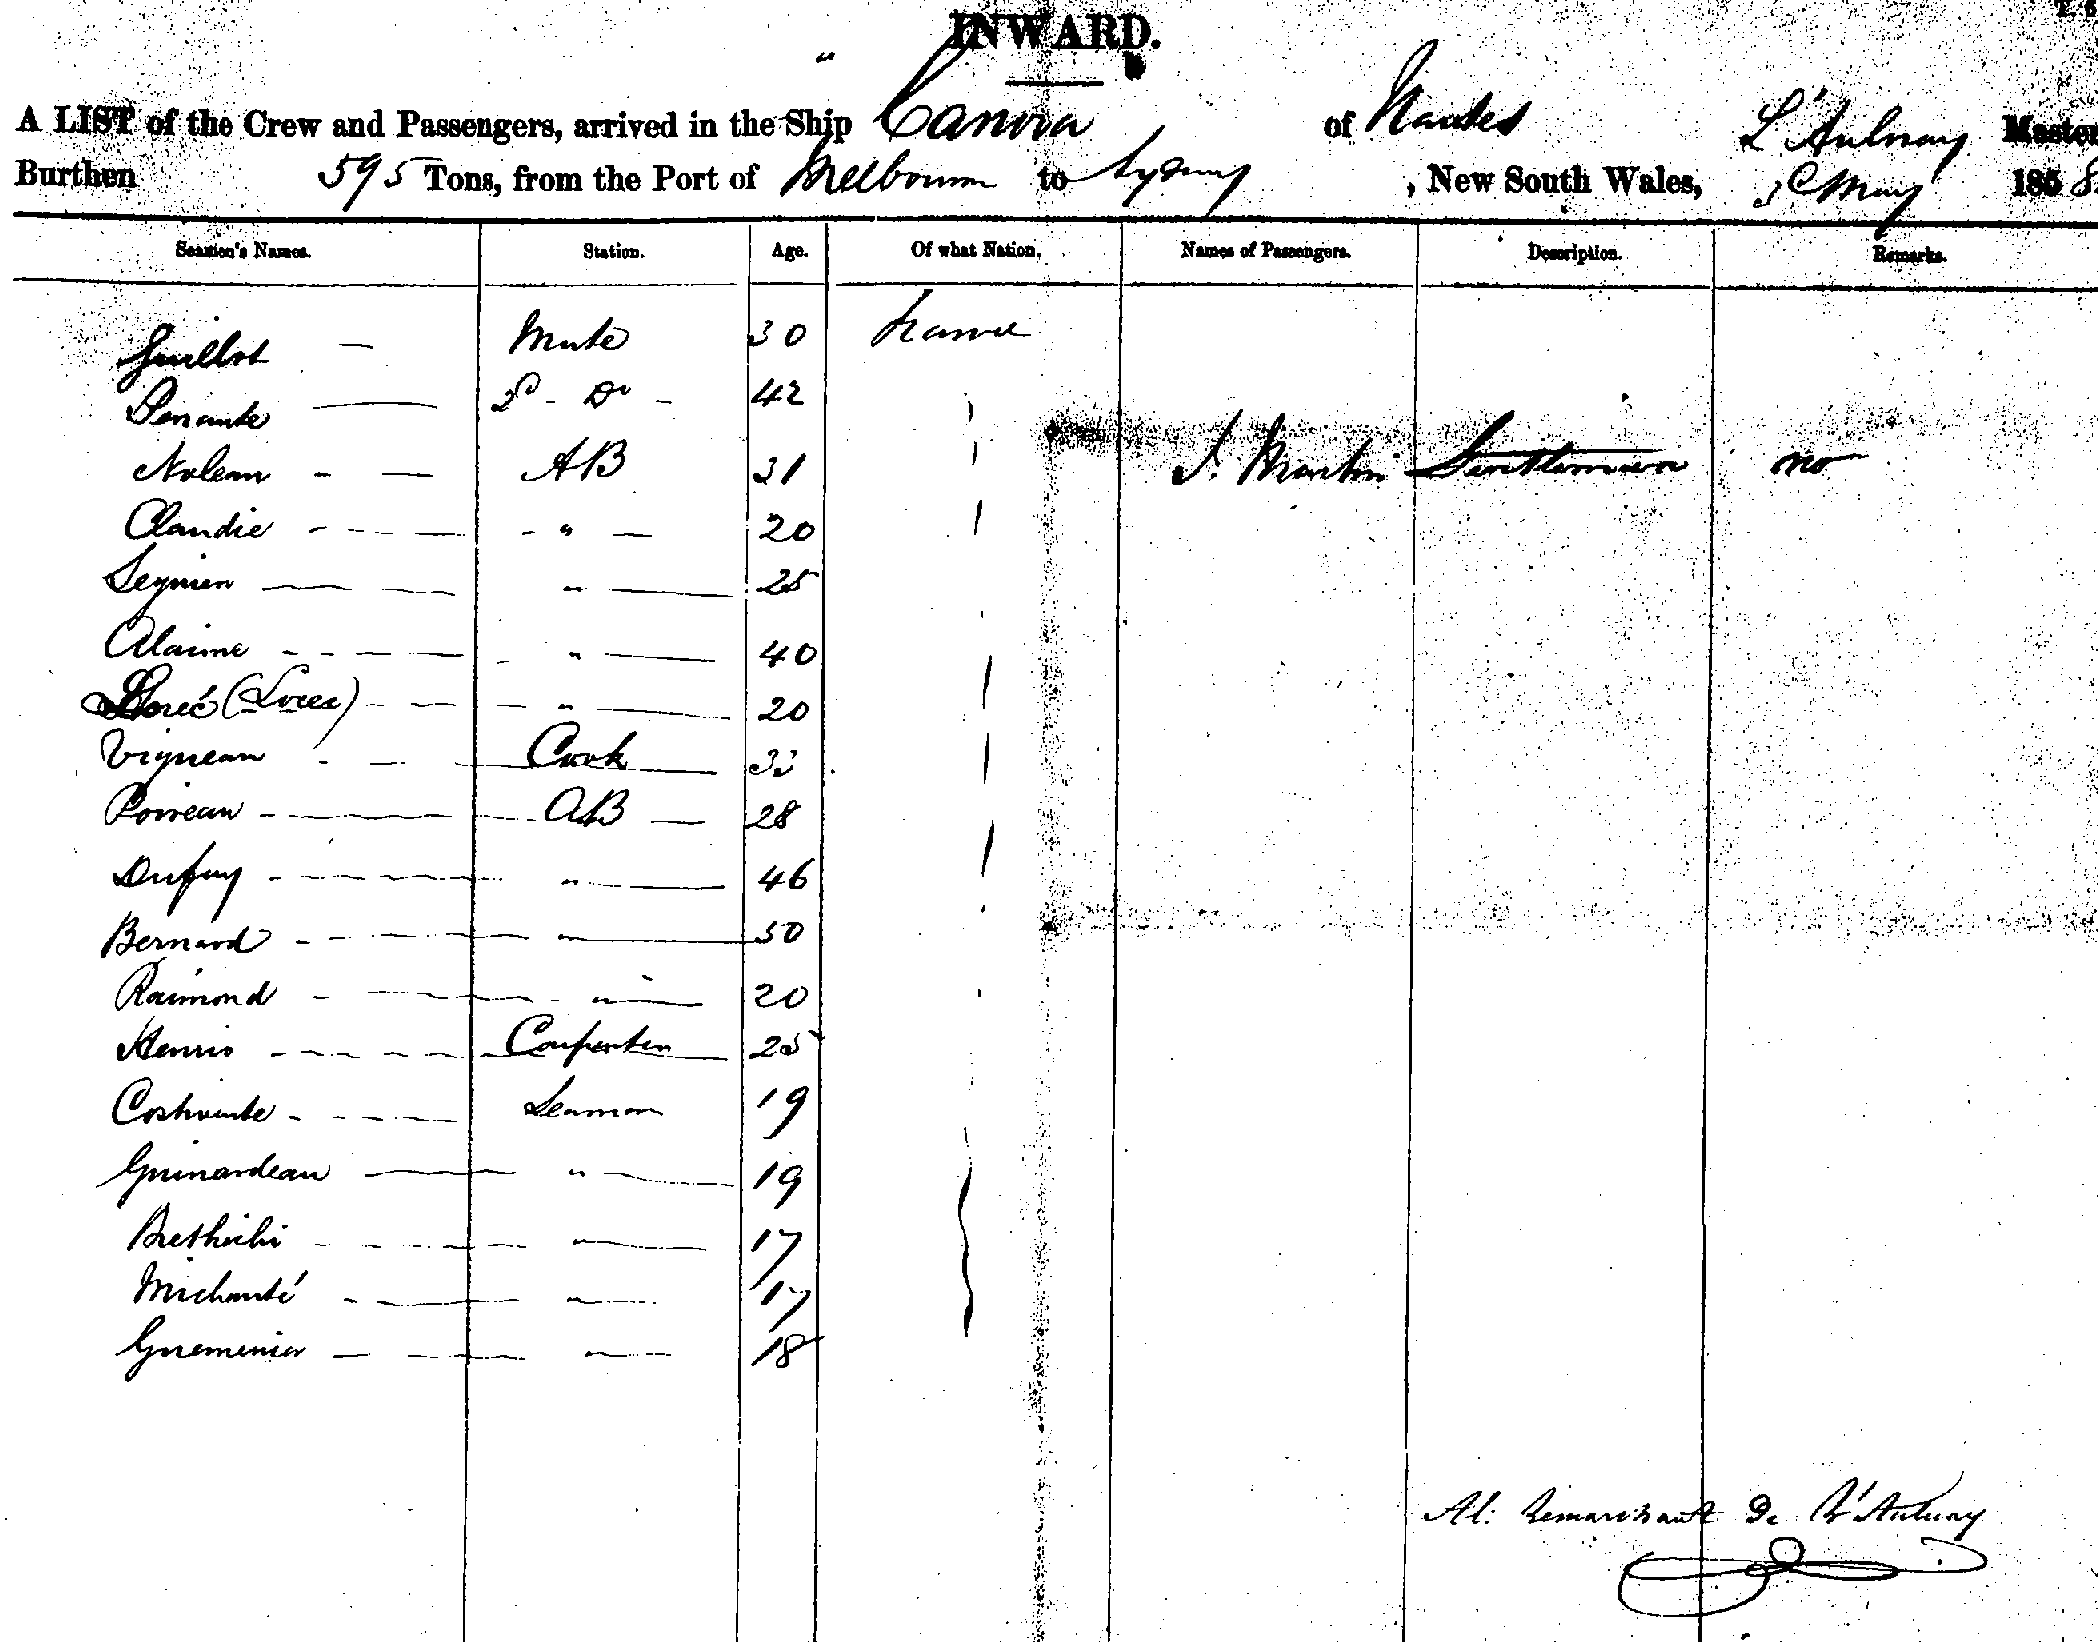 INWARD.
A LIST of the Crew and Passengers, arrived in the Ship Canova of Nantes L'Aulnay Master
Burthen 595 Tons, from the Port of Melbourne to Sydney, New South Wales, May 1858
Seamen's Names. Station. Age. Of what Nation. Names of Passengers. Description. Remarks.
Guillot — Mate 30 France
42
A B 31 J. Martin Gentleman no
Claudie " 20
" 25
Alaime " 40
(Lorec) " 20
Vigneau Cook 33
Poireau AB 28
Dufuy " 46
Bernard " 50
Raimond " 20
Henris Carpenter 25
Seaman 19
Guinardeau " 19
" 17
Michauté " 17
" 18
De L'Aulnay